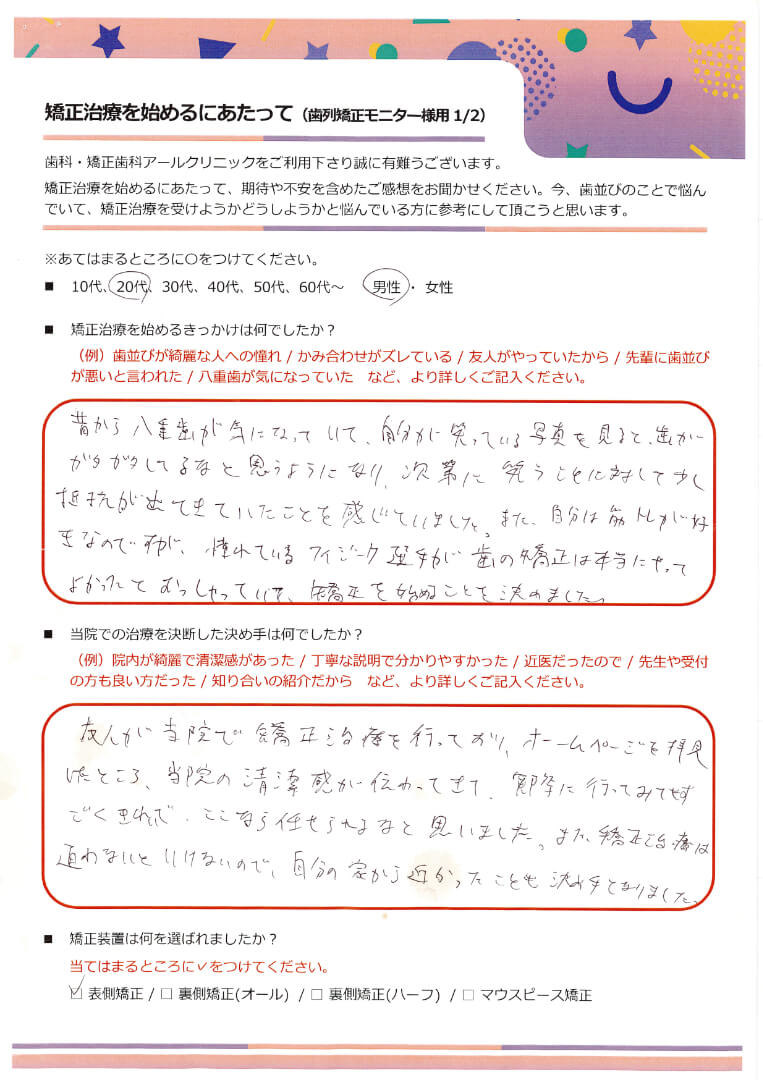 矯正治療を始めるにあたって（歯列矯正モニター様用 1/2）
歯科・矯正歯科アールクリニックをご利用下さり誠に有難うございます。
矯正治療を始めるにあたって、期待や不安を含めたご感想をお聞かせください。今、歯並びのことで悩ん
でいて、矯正治療を受けようかどうしようかと悩んでいる方に参考にして頂こうと思います。
※あてはまるところに〇をつけてください。
■ 10代、20代、30代、40代、50代、60代～ 男性・女性
■ 矯正治療を始めるきっかけは何でしたか？
（例）歯並びが綺麗な人への憧れ / かみ合わせがズレている / 友人がやっていたから / 先輩に歯並び
が悪いと言われた / 八重歯が気になっていた など、より詳しくご記入ください。
昔から八重歯が気になっていて、自分が笑っている写真を見ると、歯が
ガタガタしてるなと思うようになり、次第に笑うことに対して少し
抵抗が出てきていたことを感じていました。また、自分は筋トレが好
きなのですが、憧れているフィジーク選手が歯の矯正は本当にやって
よかったとおっしゃっていて、矯正を始めることを決めました。
■ 当院での治療を決断した決め手は何でしたか？
（例）院内が綺麗で清潔感があった / 丁寧な説明で分かりやすかった / 近医だったので / 先生や受付
の方も良い方だった / 知り合いの紹介だから など、より詳しくご記入ください。
友人が当院で矯正治療を行っており、ホームページを拝見
したところ、当院の清潔感が伝わってきて、実際に行ってみてもす
ごくきれいで、ここなら任せられるなと思いました。また、矯正治療は
通わないといけないので、自分の家から近かったことも決め手となりました。
■ 矯正装置は何を選ばれましたか？
当てはまるところに✓をつけてください。
☑ 表側矯正 / □ 裏側矯正(オール) / □ 裏側矯正(ハーフ) / □ マウスピース矯正